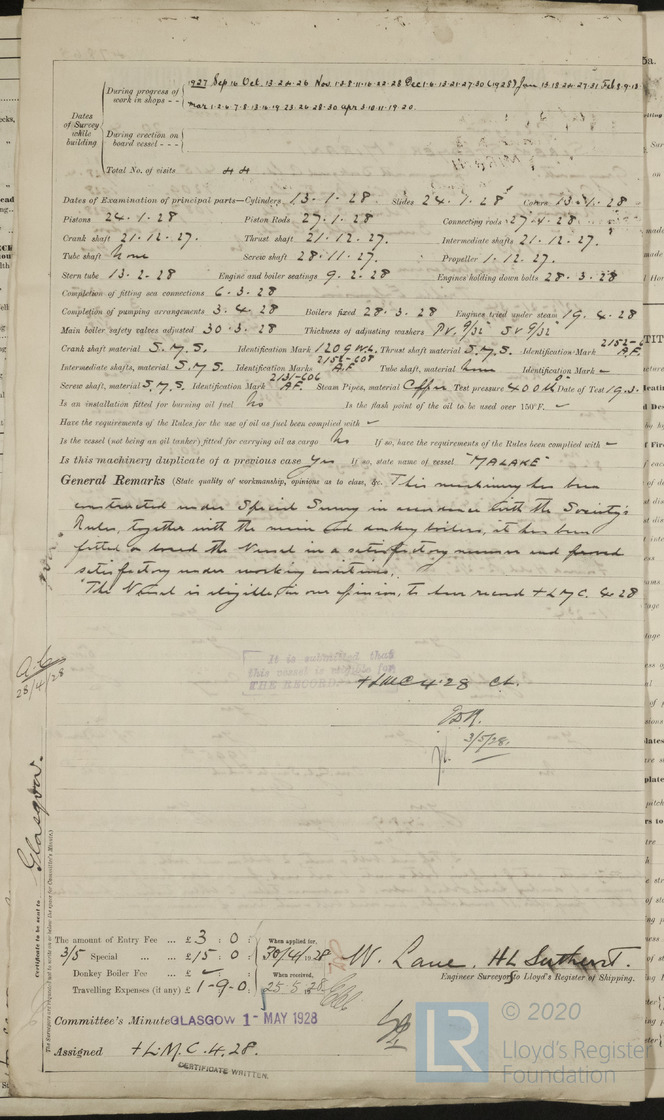 During progress of work in shops - - 1927 Sep 16 Oct 13·24·26 Nov 1·3·8·11·16·22·28 Dec 1·6·13·21·27·30 (1928) Jan 13·18·24·27·31 Feb 3·9·13
Mar 1·2·6·7·8·13·16·19·23·26·28·30 Apr 3·10·11·19·20.
Dates of Survey while building
During erection on board vessel - - -
Total No. of visits 44
Dates of Examination of principal parts—Cylinders 13·1·28 Slides 24·1·28 Covers 13·1·28
Pistons 24·1·28 Piston Rods 27·1·28 Connecting rods 27·4·28
Crank shaft 21·12·27. Thrust shaft 21·12·27. Intermediate shafts 21·12·27.
Tube shaft None Screw shaft 28·11·27. Propeller 1·12·27.
Stern tube 13·2·28 Engine and boiler seatings 9·2·28 Engines holding down bolts 28·3·28
Completion of fitting sea connections 6·3·28
Completion of pumping arrangements 3·4·28 Boilers fixed 28·3·28 Engines tried under steam 19·4·28
Main boiler safety valves adjusted 30·3·28 Thickness of adjusting washers P.V. 9/32 S.V. 9/32
Crank shaft material S.M.S. Identification Mark 1209 W.L. Thrust shaft material S.M.S. Identification Mark A.F.
Intermediate shafts, material S.M.S. Identification Marks 2152-608 A.F. Tube shaft, material None Identification Mark –
Screw shaft, material S.M.S. Identification Mark 2131-606 A.F. Steam Pipes, material Copper Test pressure 400 lb Date of Test 19·3·
Is an installation fitted for burning oil fuel No Is the flash point of the oil to be used over 150°F. –
Have the requirements of the Rules for the use of oil as fuel been complied with –
Is the vessel (not being an oil tanker) fitted for carrying oil as cargo No If so, have the requirements of the Rules been complied with –
Is this machinery duplicate of a previous case Yes If so, state name of vessel "MALAKE"
General Remarks (State quality of workmanship, opinions as to class, &c. This machinery has been
constructed under Special Survey in accordance with the Society's
Rules, together with the main and donkey boilers, it has been
fitted on board the Vessel in a satisfactory manner and proved
satisfactory under working conditions.
The Vessel is eligible, in our opinion, to have record +L.M.C. 4·28
It is submitted that
this vessel is eligible for
THE RECORD
+LMC 4·28 CL.
3/5/28.
28/4/28
Glasgow.
Certificate to be sent to
The Surveyors are requested not to write on or below the space for Committee's Minute.
The amount of Entry Fee ... £ 3 : 0 :
3/5 Special ... ... £ 15 : 0 :
Donkey Boiler Fee ... £
Travelling Expenses (if any) £ 1-9-0
When applied for, 30/4/1928
When received, 25·5·1928
W. Lane. H.L. Sutherst.
Engineer Surveyors to Lloyd's Register of Shipping.
Committee's Minute GLASGOW 1- MAY 1928
Assigned +L.M.C. 4.28.
CERTIFICATE WRITTEN.
LR
© 2020
Lloyd's Register
Foundation